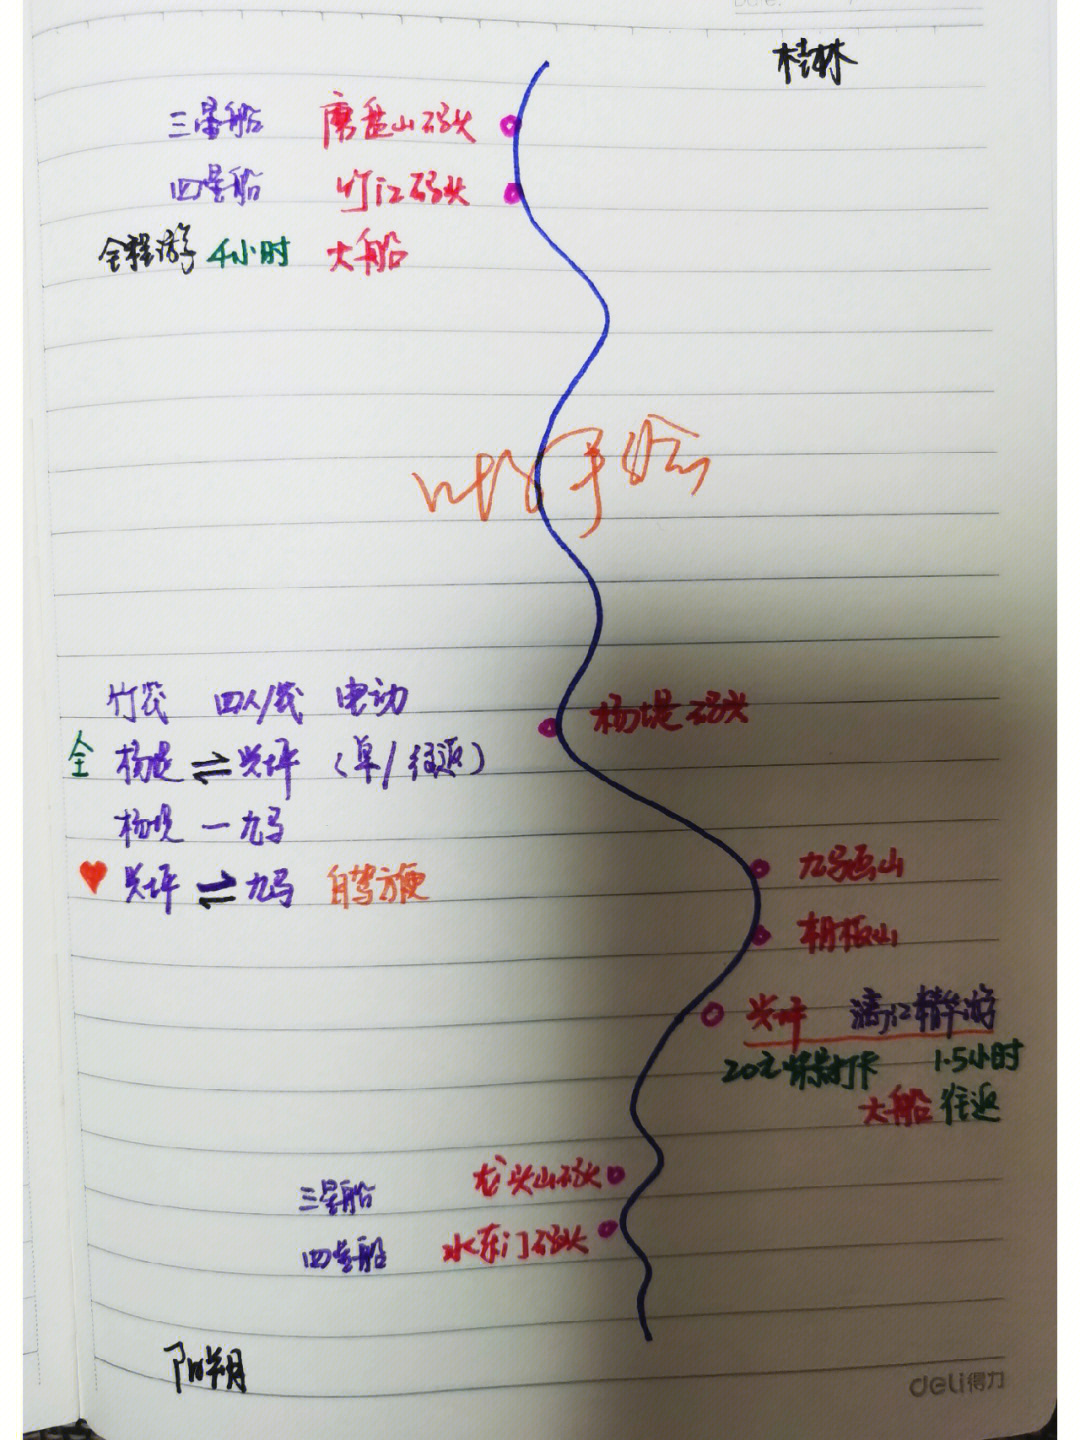 Date:
桂林
三星船 磨盘山码头
四星船 竹江码头
全程游 4小时 大船
手绘
竹筏 四人/筏 电动
杨堤码头
全 杨堤⇌兴坪 (单/往返)
杨堤—九马
九马画山
兴坪⇌九马 自驾方便
兴坪 漓江精华游
20元背景打卡 1.5小时
大船 往返
龙头山码头
三星船
水东门码头
四星船
阳朔
deli得力